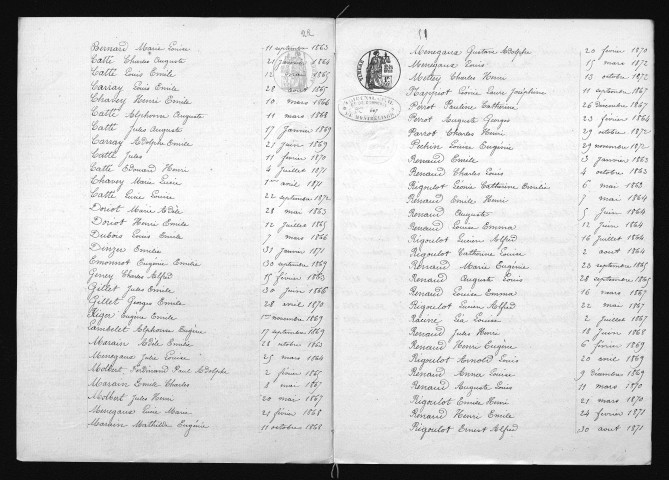 22
Bernard Marie Louise 11 septembre 1863
Catté Charles Auguste 21 janvier 1864
Catté Louis Emile 12 1865
Carray Louis Emile 28 août 1865
Chavey Henri Emile 10 mars 1866
Catté Alphonse Auguste 11 mars 1868
Catté Jules Auguste 17 janvier 1869
Carray Adolphe Emile 21 juin 1869
Catté Jules 11 février 1870
Catté Edouard Henri 4 juillet 1871
Chavey Marie Lucie 1er avril 1871
Catté Lucie Louise 22 septembre 1872
Doriot Marie Adèle 28 mai 1863
Doriot Henri Emile 12 juillet 1865
Dubois Louis Emile 7 mars 1866
Dinzer Emilie 31 janvier 1871
Emonnot Eugénie Emilie 30 septembre 1869
Goney Charles Alfred 15 février 1863
Gillet Jules Emile 30 juin 1866
Gillet Georges Emile 28 avril 1870
Eugène Emile 1er novembre 1869
Lambelet Alphonse Eugène 17 septembre 1869
Marain Adèle Emilie 28 octobre 1863
Menegaux Julie Louise 25 mars 1864
Molbert Ferdinand Paul Adolphe 2 février 1865
Marain Emile Charles 8 mai 1867
Molbert Jules Henri 20 mai 1867
Menegaux Lucie Marie 21 février 1868
Marain Mathilde Eugénie 11 octobre 1868
Menegaux Gustave Adolphe 20 février 1870
Menegaux Louis 15 mars 1872
Mettey Charles Henri 13 octobre 1872
Louise Laure Joséphine 11 septembre 1867
Perrot Pauline Catherine 26 décembre 1867
Perrot Auguste Georges 23 février 1864
Parrot Charles Henri 29 octobre 1872
Péchin Louise Eugénie 29 novembre 1872
Renaud Emile 13 janvier 1863
Renaud Charles Louis 4 octobre 1863
Rigoulot Léonie Catherine Emilie 6 mai 1863
Renaud Emile Henri 7 mai 1864
Renaud Auguste 5 juin 1864
Renaud Louise Emma 12 juin 1864
Rigoulot Lucien Alfred 16 juillet 1864
Rigoulot Catherine Louise 2 août 1864
Renaud Marie Eugénie 23 septembre 1865
Renaud Auguste Louis 28 septembre 1865
Renaud Louise Emma 16 mars 1867
Rigoulot Lucien Alfred 22 mai 1867
Racine Léa Louise 2 juillet 1867
Renaud Jules Henri 18 juin 1868
Renaud Henri Eugène 6 février 1869
Rigoulot Arnold Louis 20 avril 1869
Renaud Anna Louise 9 décembre 1869
Renaud Auguste Louis 11 mars 1870
Rigoulot Emile Henri 21 mars 1870
Renaud Henri Emile 24 février 1871
Rigoulot Ernest Alfred 30 août 1871